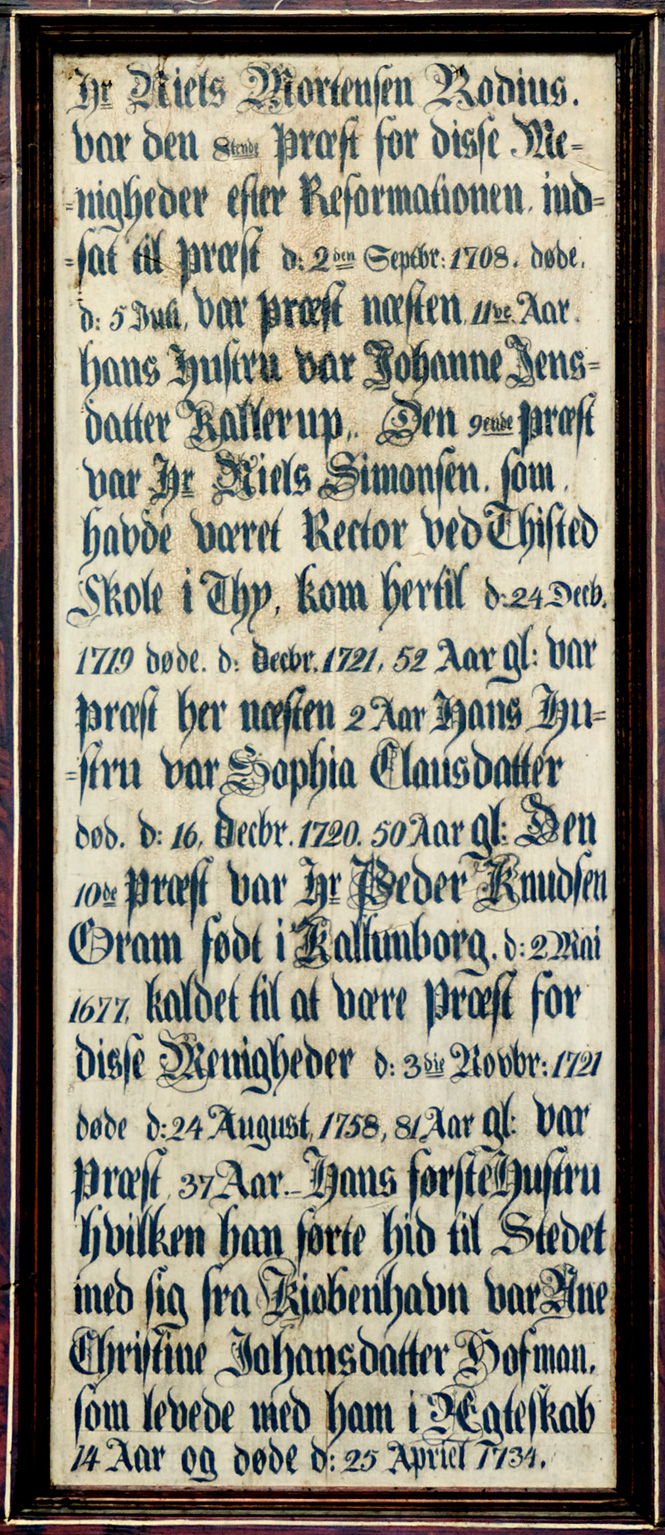 Hr Niels Mortensen Rodius.
var den 8tende Præst for disse Me=
=nigheder efter Reformationen, ind=
=sat til præst d: 2den Septbr: 1708. døde.
d: 5 Juli, var præst næsten 11ve Aar.
hans Hustru var Johanne Jens=
datter Kallerup,. Den 9ende præst
var Hr Niels Simonsen. som
havde været Rector ved Thisted
Skole i Thy, kom hertil d: 24 Decb.
1719 døde. d: Decbr. 1721, 52 Aar gl: var
præst her næsten 2 Aar Hans Hu=
=stru var Sophia Clausdatter
død. d: 16, Decbr. 1720. 50 Aar gl: Den
10de Præst var Hr Peder Knudsen
Gram født i Kallunborg. d: 2 Mai
1677, kaldet til at være Præst for
disse Menigheder d: 3die Novbr: 1721
døde d: 24 August, 1758, 81 Aar gl: var
Præst, 37 Aar.– Hans første Hustru
hvilken han førte hid til Stedet
med sig fra Kiøbenhavn var Ane
Christine Johansdatter Hofman.
som levede med ham i Ægteskab
14 Aar og døde d: 25 Apriel 1734.